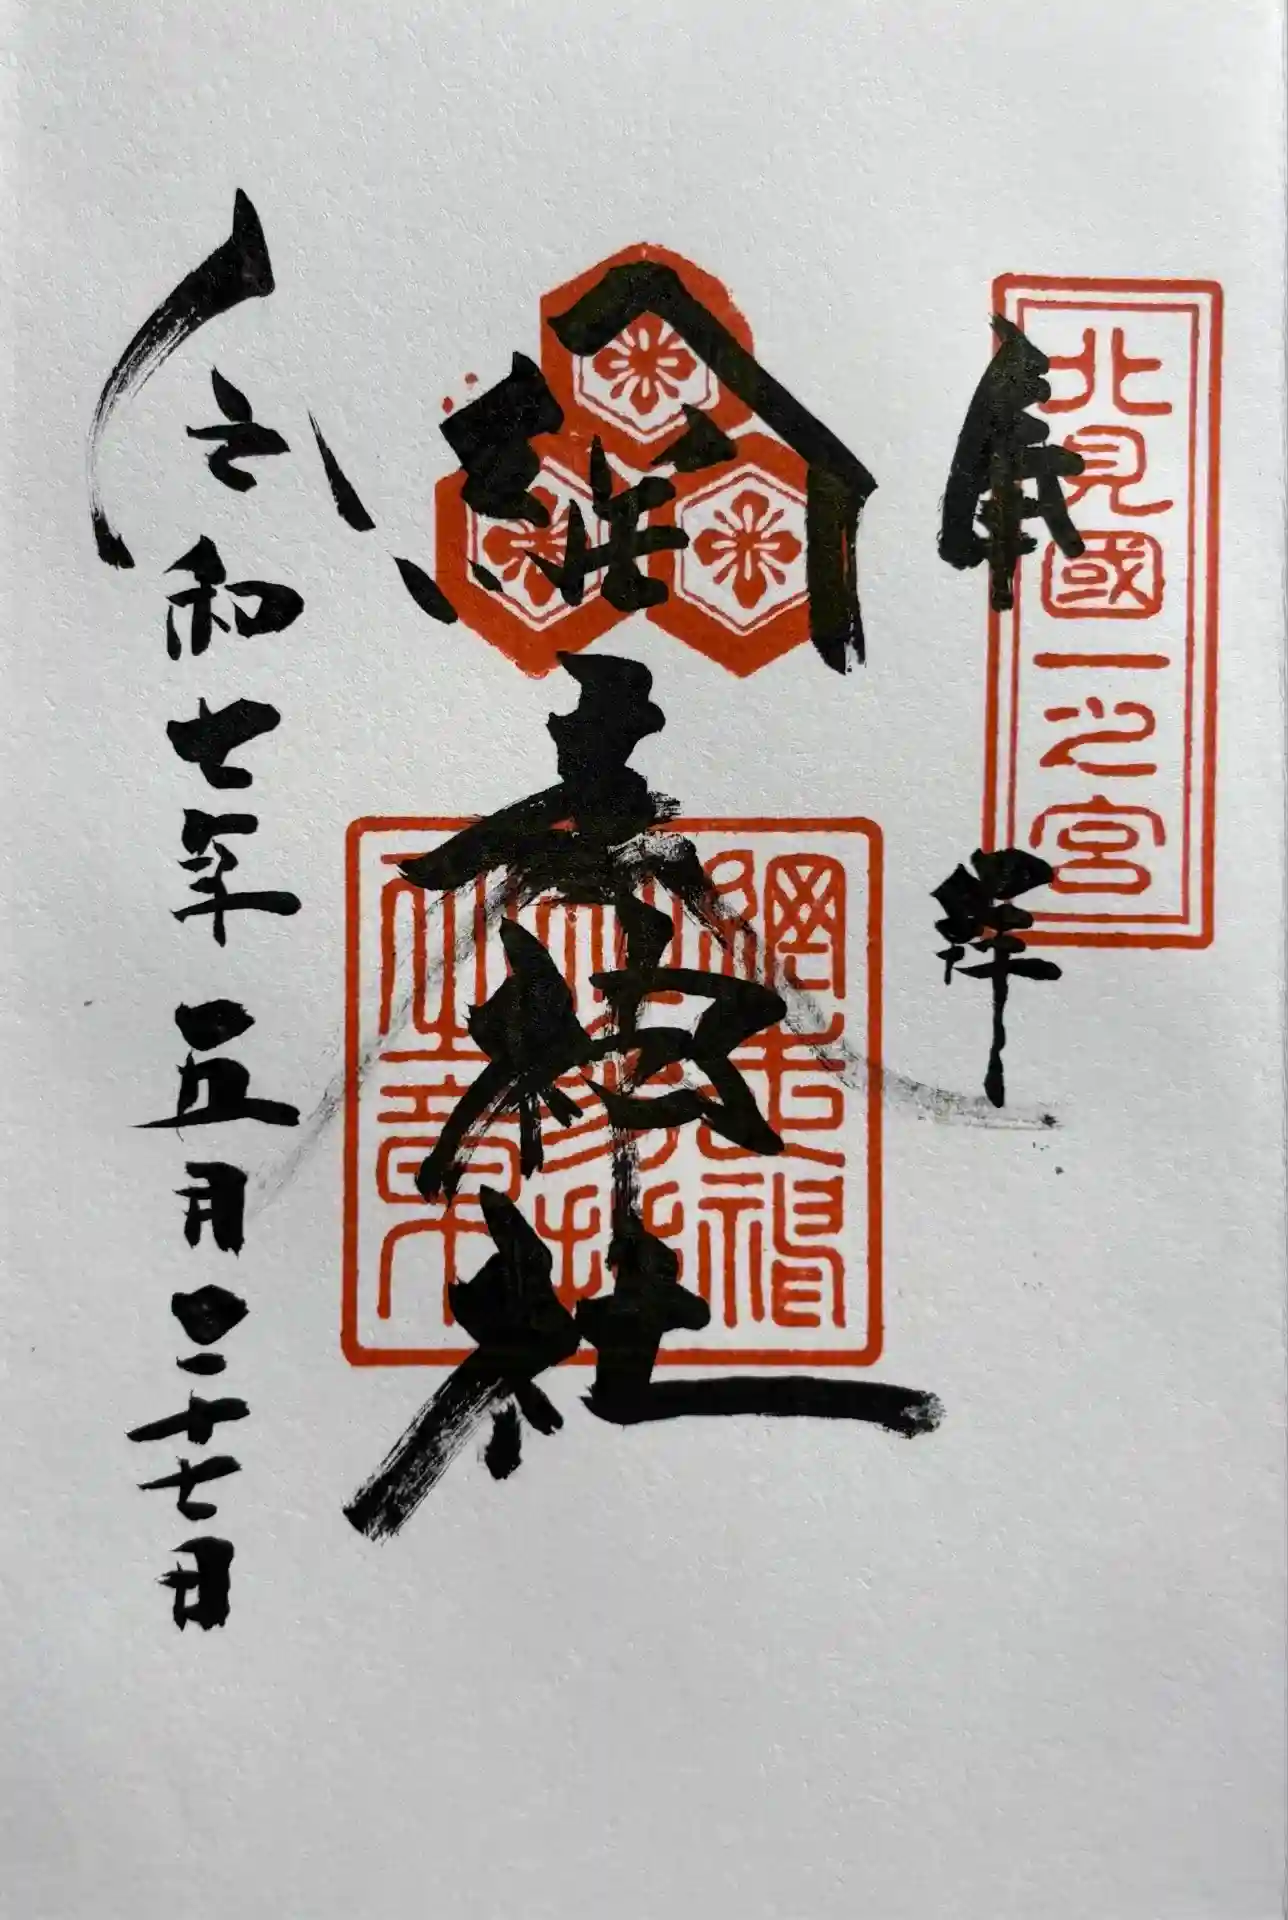 北見國一之宮
奉拝
網走神社
網走神
社参拝
之章
令和七年五月二十七日